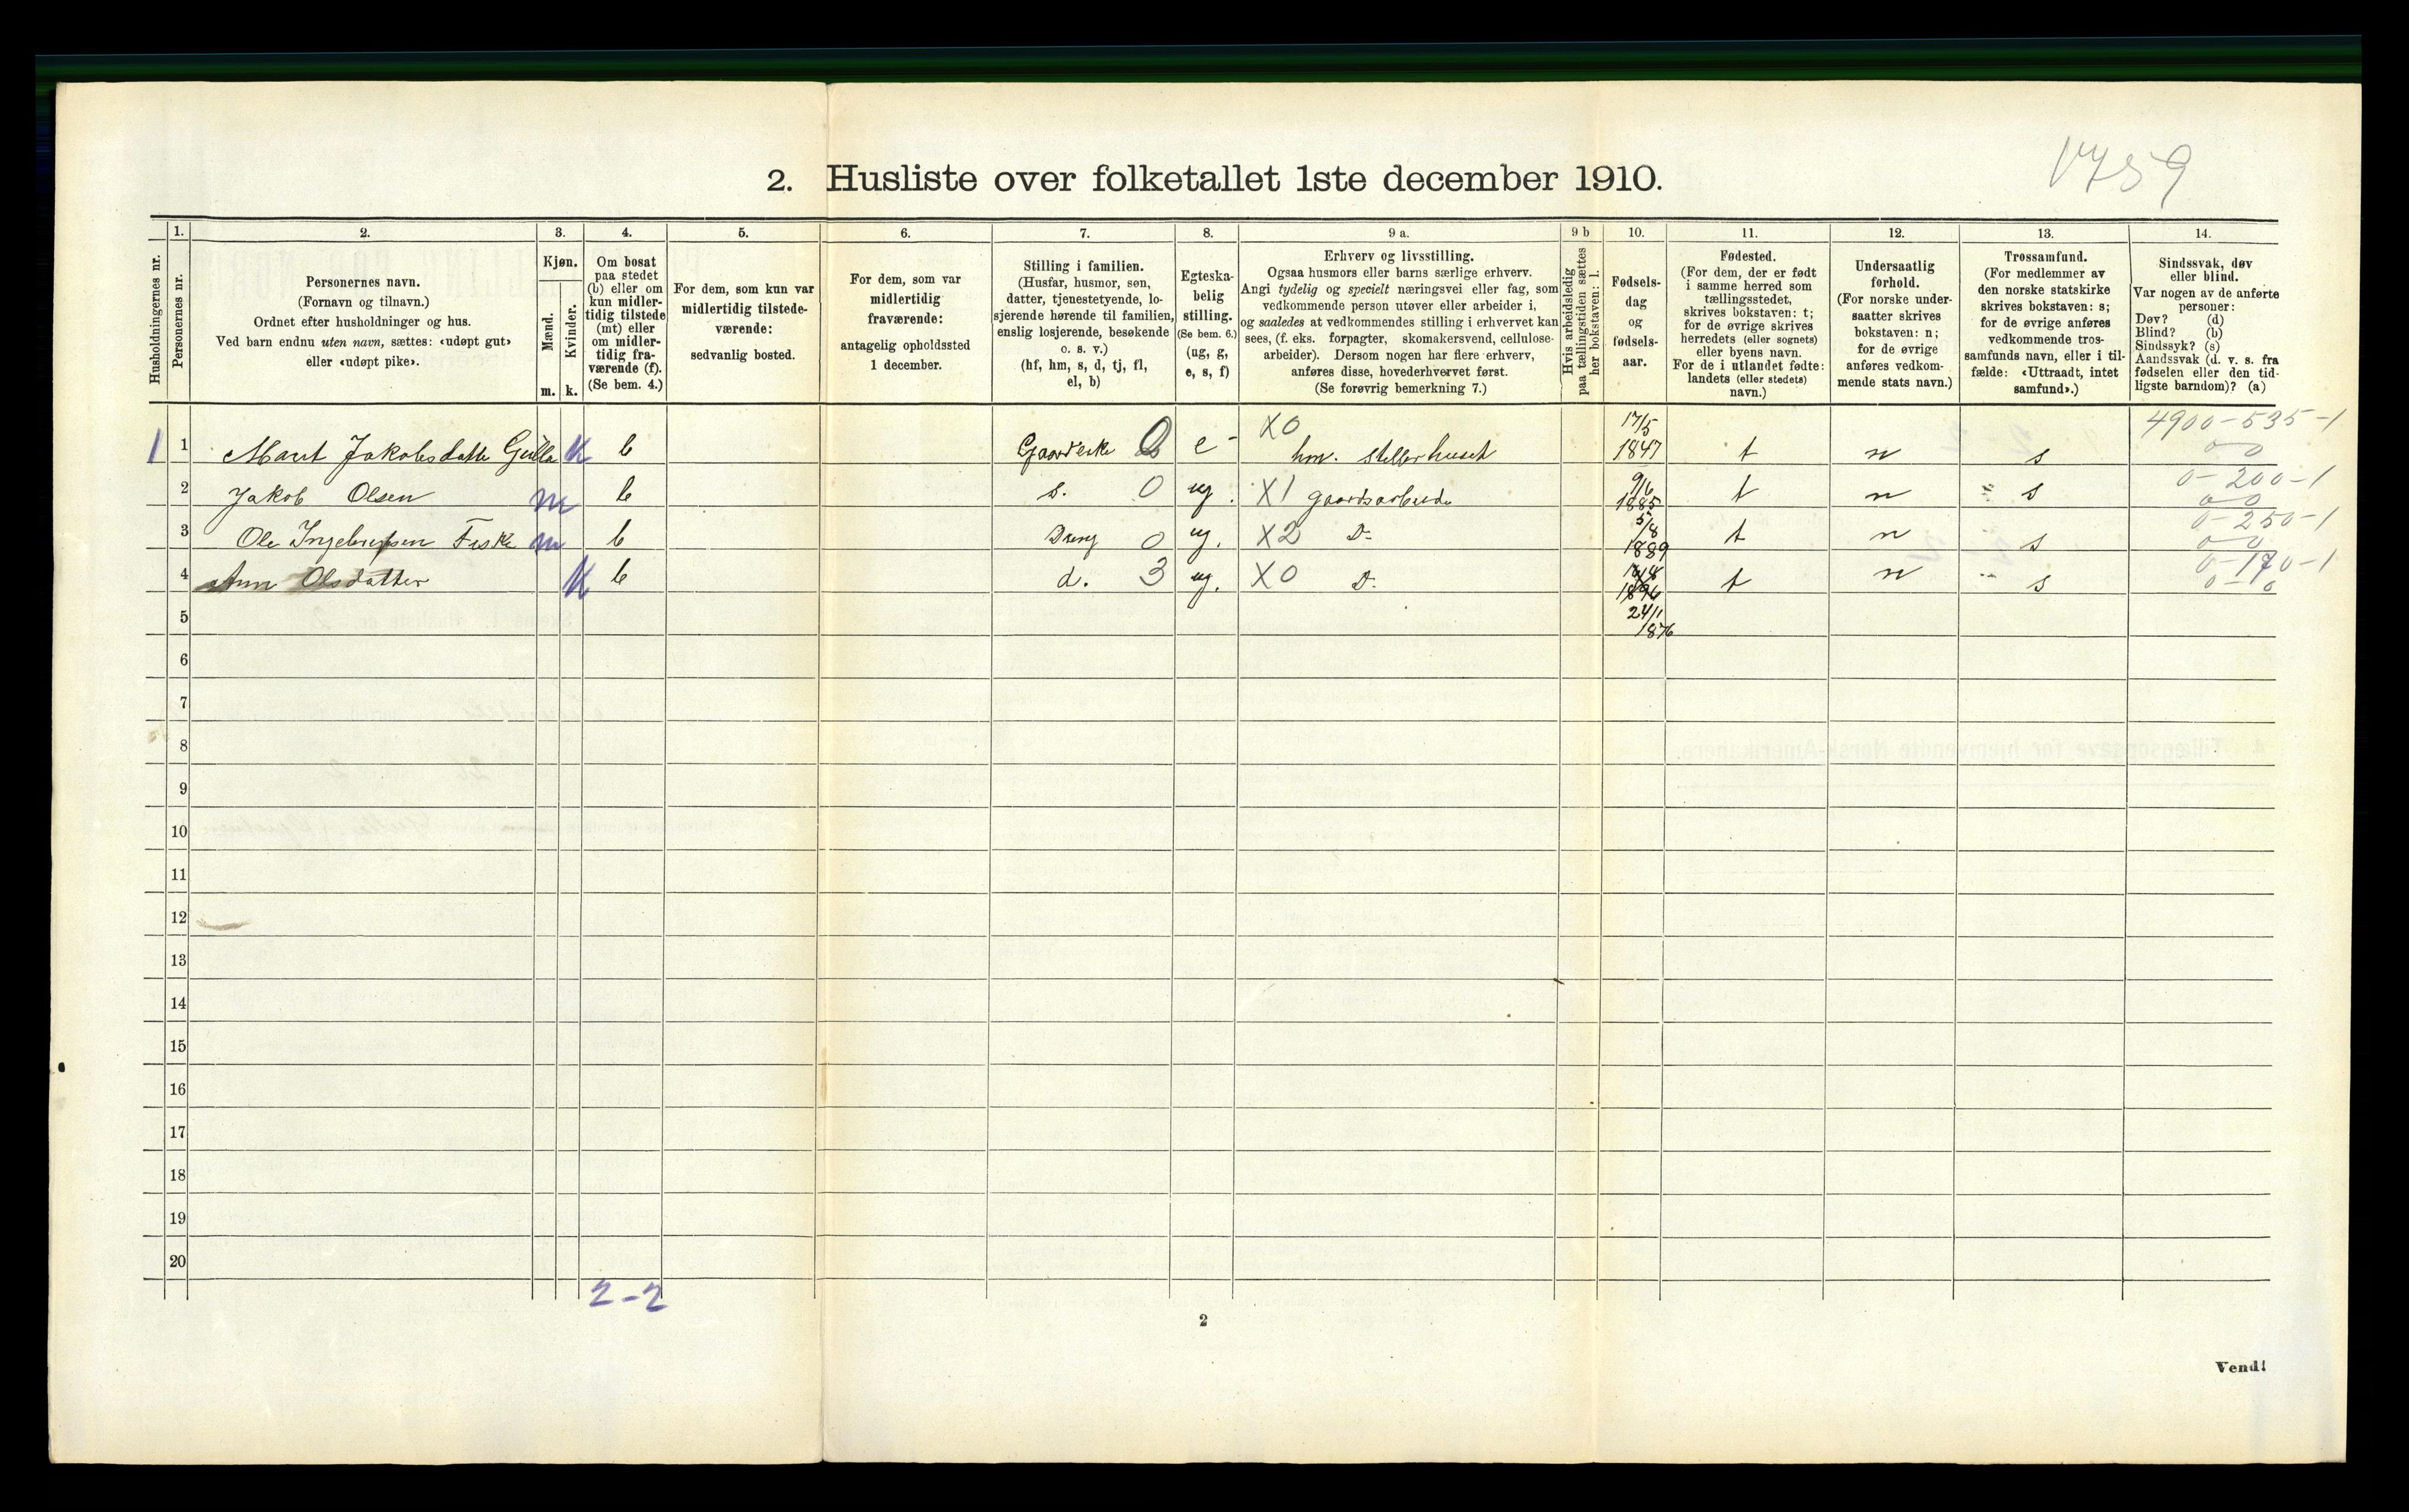 1759
2. Husliste over folketallet 1ste december 1910.
Husholdningernes nr.
1. Personernes nr.
2. Personernes navn.
(Fornavn og tilnavn.)
Ordnet efter husholdninger og hus.
Ved barn endnu uten navn, sættes: «udøpt gut»
eller «udøpt pike».
3. Kjøn.
Mænd. m.
Kvinder. k.
4. Om bosat
paa stedet
(b) eller om
kun midler-
tidig tilstede
(mt) eller
om midler-
tidig fra-
værende (f).
(Se bem. 4.)
5. For dem, som kun var
midlertidig tilstede-
værende:
sedvanlig bosted.
6. For dem, som var
midlertidig
fraværende:
antagelig opholdssted
1 december.
7. Stilling i familien.
(Husfar, husmor, søn,
datter, tjenestetyende, lo-
sjerende hørende til familien,
enslig losjerende, besøkende
o. s. v.)
(hf, hm, s, d, tj, fl,
el, b)
8. Egteska-
belig
stilling.
(Se bem. 6.)
(ug, g,
e, s, f)
9 a. Erhverv og livsstilling.
Ogsaa husmors eller barns særlige erhverv.
Angi tydelig og specielt næringsvei eller fag, som
vedkommende person utøver eller arbeider i,
og saaledes at vedkommendes stilling i erhvervet kan
sees, (f. eks. forpagter, skomakersvend, cellulose-
arbeider). Dersom nogen har flere erhverv,
anføres disse, hovederhvervet først.
(Se forøvrig bemerkning 7.)
9 b Hvis arbeidsledig
paa tællingstiden sættes
her bokstaven: l.
10. Fødsels-
dag
og
fødsels-
aar.
11. Fødested.
(For dem, der er født
i samme herred som
tællingsstedet,
skrives bokstaven: t;
for de øvrige skrives
herredets (eller sognets)
eller byens navn.
For de i utlandet fødte:
landets (eller stedets)
navn.)
12. Undersaatlig
forhold.
(For norske under-
saatter skrives
bokstaven: n;
for de øvrige
anføres vedkom-
mende stats navn.)
13. Trossamfund.
(For medlemmer av
den norske statskirke
skrives bokstaven: s;
for de øvrige anføres
vedkommende tros-
samfunds navn, eller i til-
fælde: «Uttraadt, intet
samfund».)
14. Sindssvak, døv
eller blind.
Var nogen av de anførte
personer:
Døv? (d)
Blind? (b)
Sindssyk? (s)
Aandssvak (d. v. s. fra
fødselen eller den tid-
ligste barndom)? (a)
4900-535-1
1 1 Marit Jakobsdatte Gulla K b 0 e X0 hm. steller huset 17/5 1847 t n s 0-0
0-200-1
2 Jakob Olsen m b s. 0 ug. X1 gaardsarbeide 9/6 1885 t n s 0-0
0-250-1
3 Ole Ingebrigtsen Fiske m b Dreng 0 ug. X2 D- 5/8 1889 t n s 0-0
0-170-1
4 Ann Olsdatter K b d. 3 ug. X0 D- t n s 0-0
5 24/1 1876
6
7
8
9
10
11
12
13
14
15
16
17
18
19
20
2-2
2
Vend!